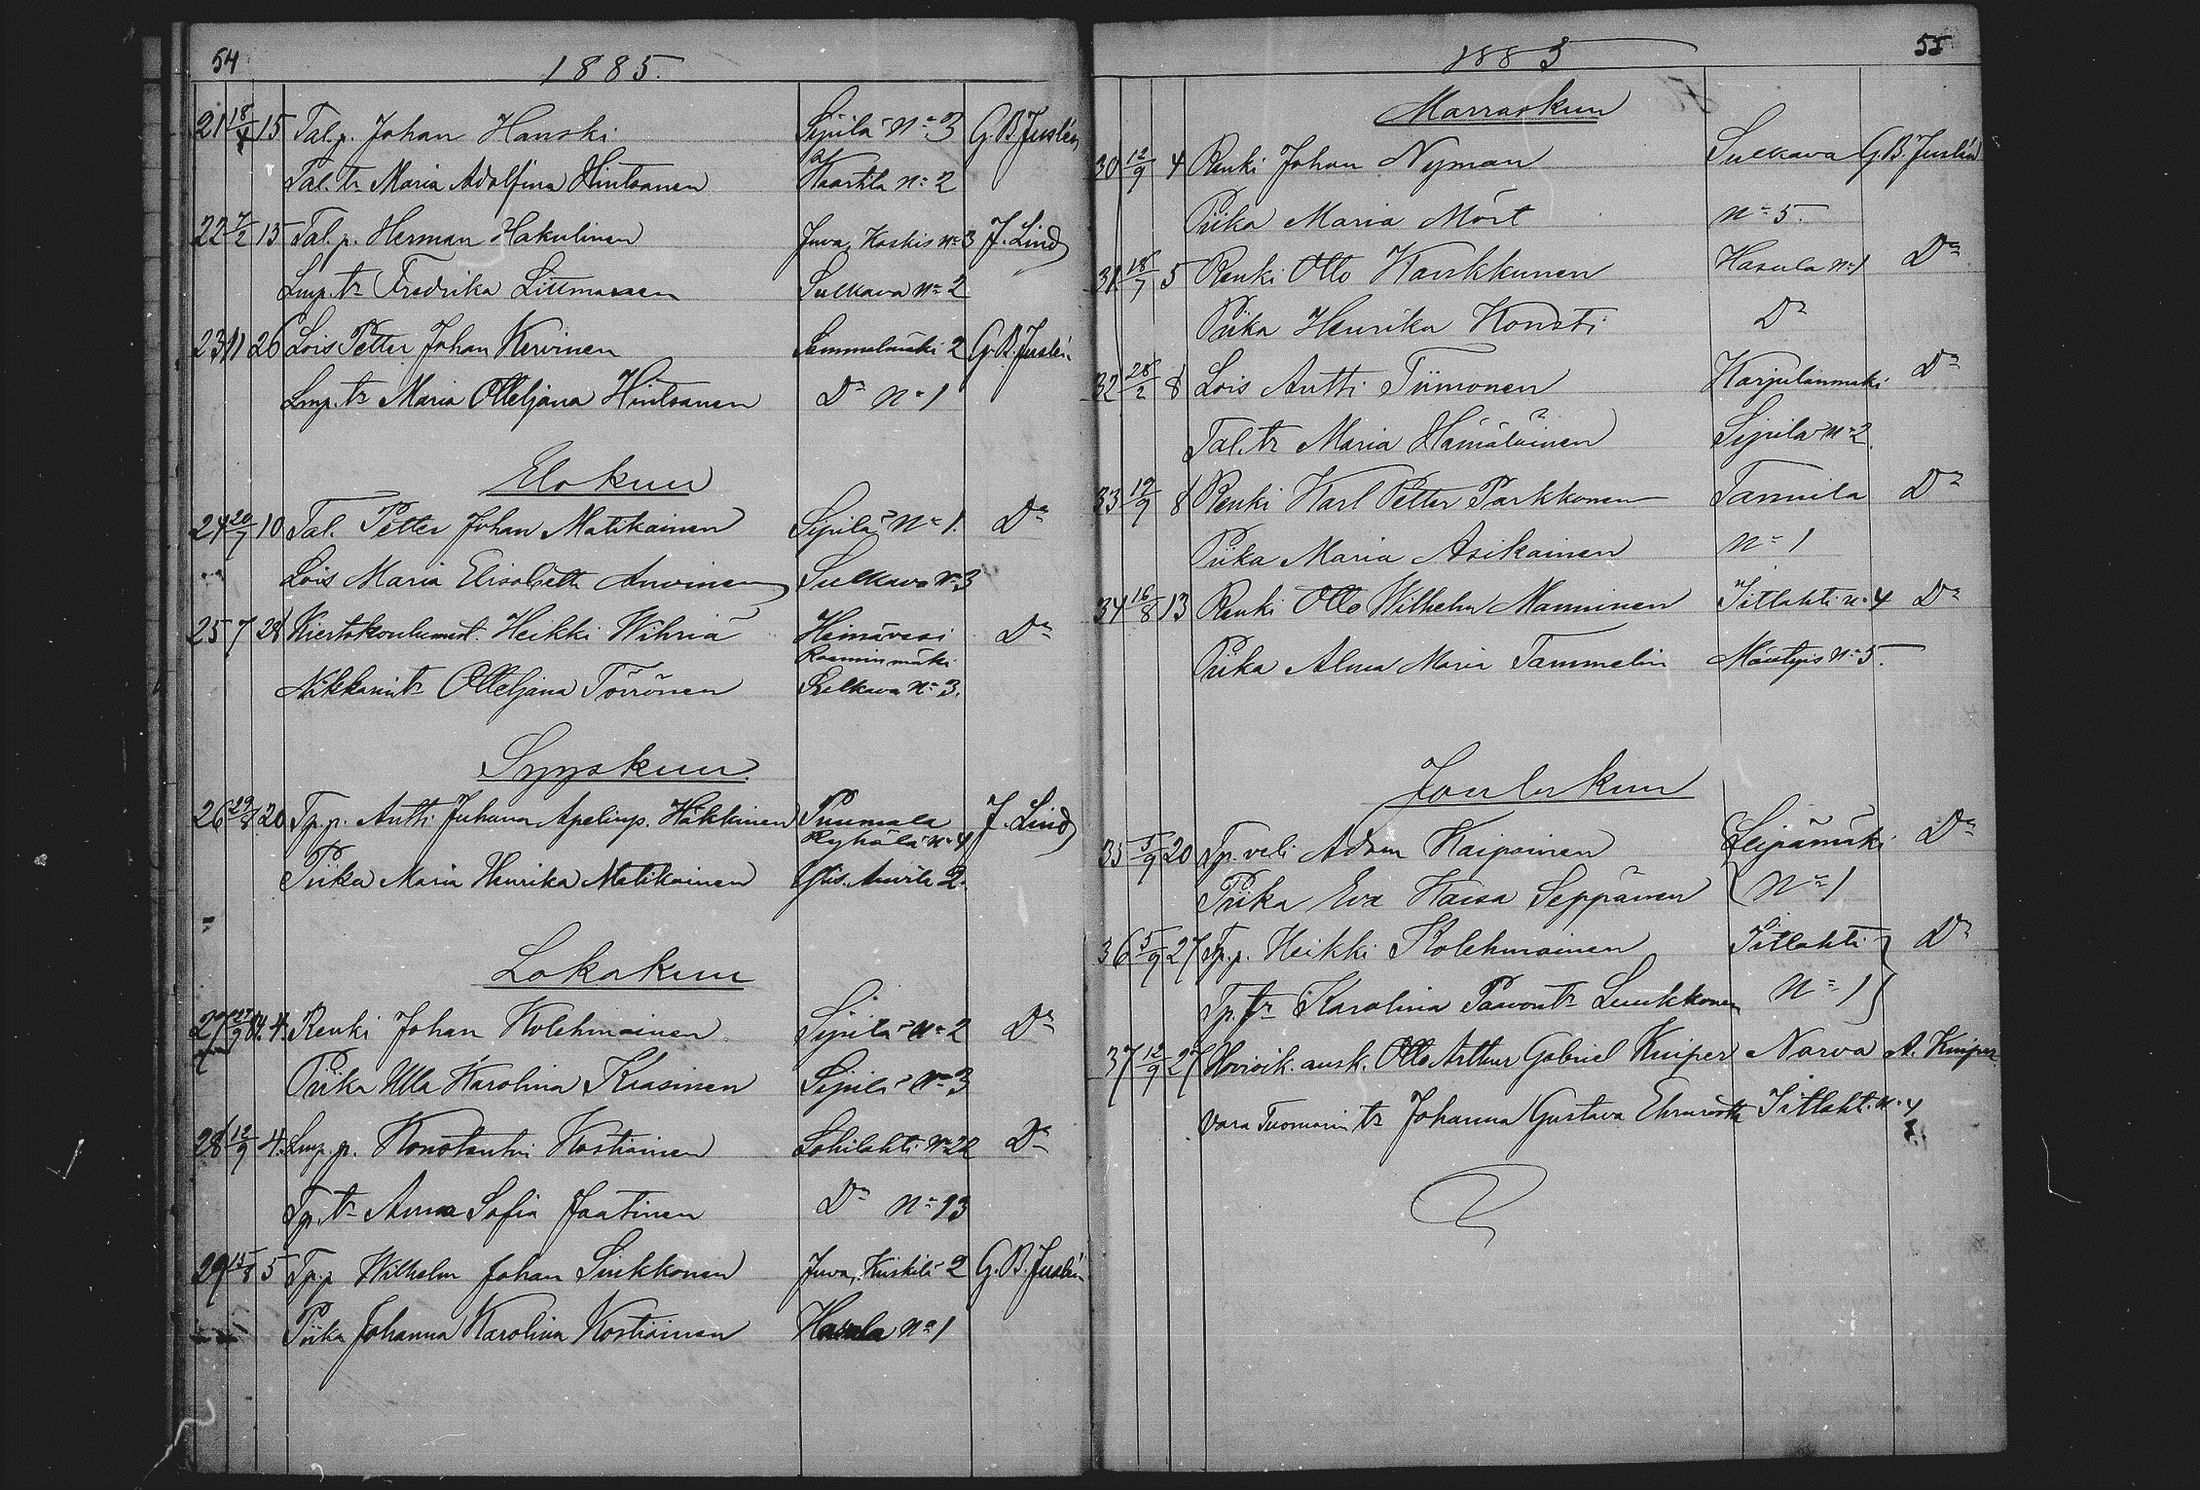 54
1885.
21 18/4 15 Tal.p. Johan Hanski Sipilä No 3 G. B. Juslén
Tal. tr Maria Adolfina Hintsanen Kaartila No 2
22 7/2 15 Tal. p. Herman Hakulinen Juva, Koskis No 3 J. Lind
Lmp. tr Fredrika Littmanen Sulkava No 2
23 11 26 Lois Petter Johan Kervinen Sammalmäki 2 G. B. Juslén
Lmp. tr Maria Otteljana Hintsanen Do No 1
Elokuu
24 20/7 10 Tal. Petter Johan Matikainen Sipilä No 1. Do
Lois Maria Elisabeth Auvinen Sulkava No 3
25 7 28 Kiertokoulunest. Heikki Wihriä Heinävesi Do
Rasminmäki
Nikkarin tr Otteljana Törrönen Sulkava No 3.
Syyskuu
26 29/8 20 Tp. p. Antti Juhana Apelinp. Häkkinen Puumala J. Lind
Ryhälä No 4
Piika Maria Henrika Matikainen Auvila 2.
Lokakuu
27 4. Renki Johan Kolehmainen Sipilä No 2 Do
Piika Ulla Karolina Kiasinen Sipilä No 3
28 12/9 4. Lmp. p. Konstantin Kostiainen Lohilahti No 22 Do
Tp. tr Anna Sofia Jaatinen Do No 13
29 15/8 5 Tp. p Wilhelm Johan Sinkkonen Juva, Kiiskilä 2 G. B. Juslén
Piika Johanna Karolina Kostiainen Hasula No 1
55
1885
Marraskuu
30 12/9 4 Renki Johan Nyman Sulkava G. B. Juslén
Piika Maria Mört No 5.
31 18/7 5 Renki Otto Karskkunen Hasula No 1 Do
Piika Henrika Konsti Do
32 28/2 8 Lois Antti Tiimonen Karjulanmäki Do
Tal. tr Maria Hämäläinen Sipilä No 2
33 19/9 8 Renki Karl Petter Parkkonen Tannila Do
Piika Maria Asikainen No 1
34 16/8 13 Renki Otto Wilhelm Manninen Iitlahti No 4 Do
Piika Alma Maria Tammelin Mäntyis No 5.
Joulukuu
35 5/9 20 Tp. veli Adam Kaipainen Leipämäki Do
Piika Eva Kaisa Seppänen No 1
36 5/9 27 Tp. p. Heikki Kolehmainen Iitlahti Do
Tp. tr Karolina Paavon tr Luukkonen No 1
37 12/9 27 Hovioik. ausk. Otto Arthur Gabriel Kuiper Narva A. Kuiper
Vara Tuomarin tr Johanna Gustava Ehrnrooth Iitlahti No 4